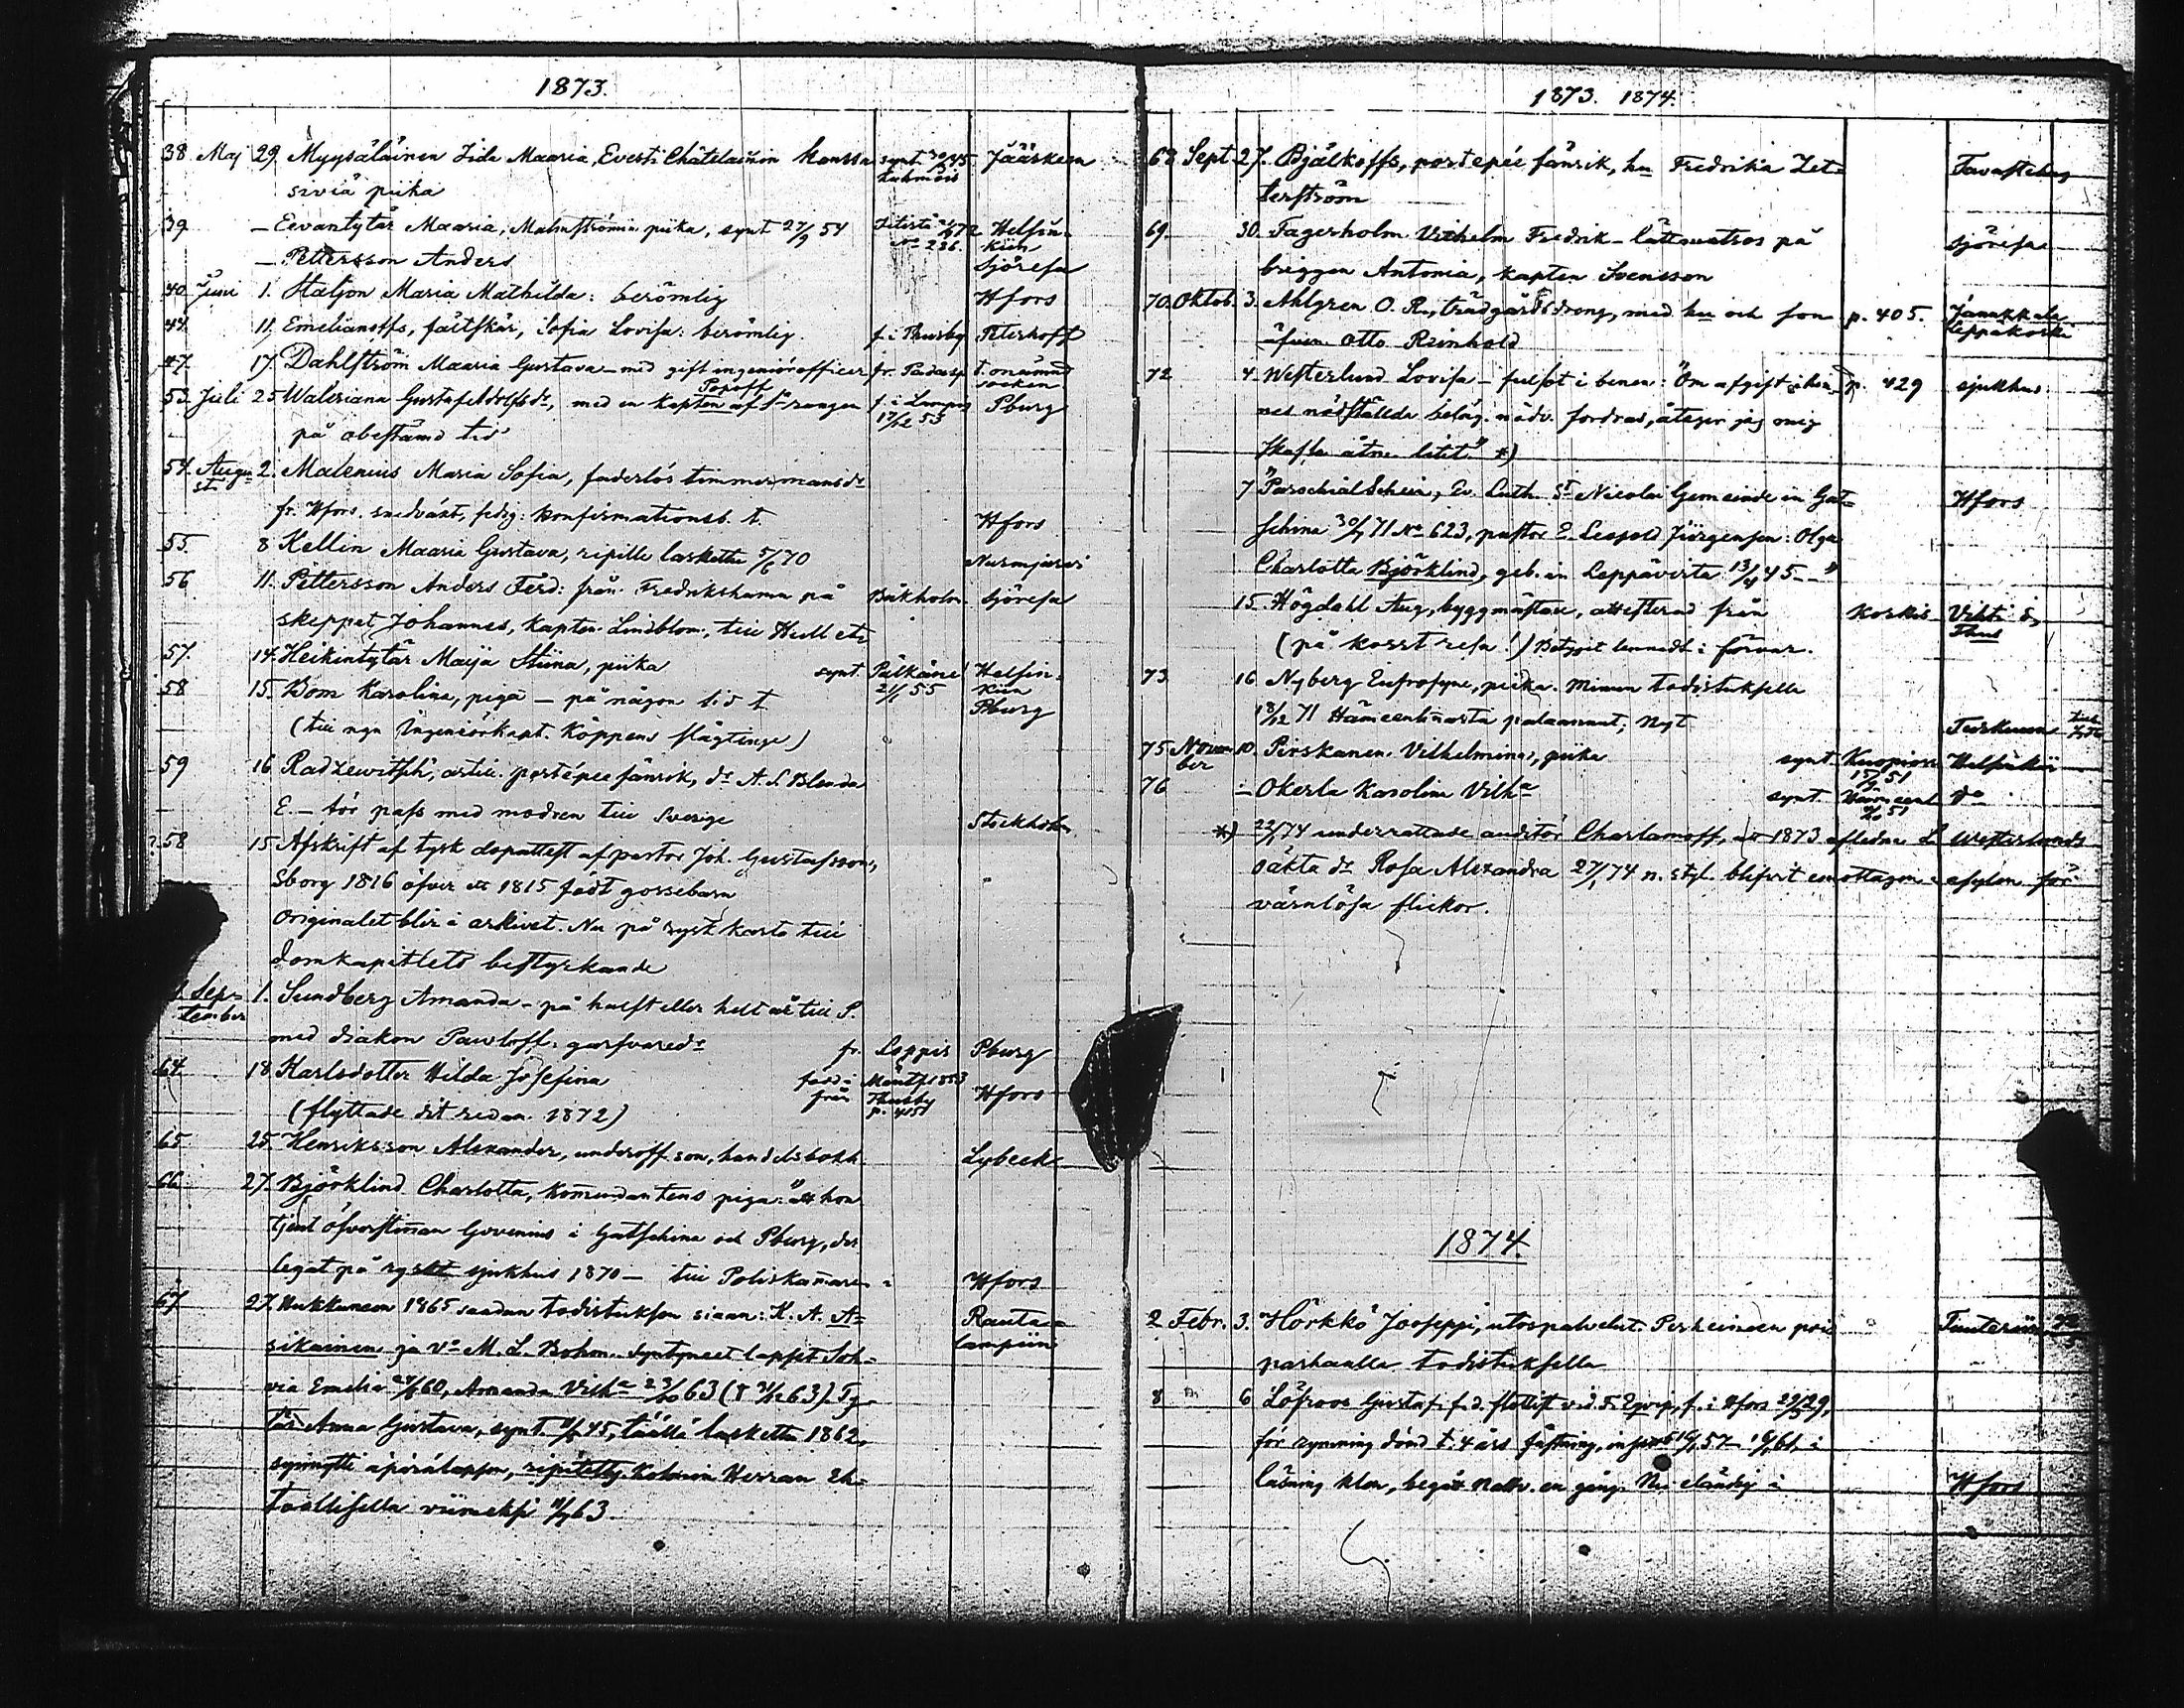 1873.
38 Maj 29. Myysäläinen Iida Maaria, Eversti Châtelainin kanssa synt 45 Jääskeen
siviä piika
39 — Eevantytär Maaria, Malmströmin piika, synt 27/9 54 No 236. Helsinkiin
— Pettersson Anders Sjöresa
40 Juni 1. Staljon Maria Mathilda: berömlig Hfors
44. 11. Emelianoffs, fältskär, Sofia Lovisa: berömlig. f. i Thusby Peterhoff
47. 17. Dahlström Maaria Gustava — med gift ingeniörofficer fr. Padasj. t. onämnd socken
53. Juli 25 Waleriana Gustafadolfsdr, med en kapten Popoff af på obestämd tid 17/12 53 Pburg
54. August 2. Malenius Maria Sofia, faderlös timmermansdr
fr. Hfors. konfirmationsb. t. Hfors
55. 8 Kellin Maaria Gustava, ripille laskettu 5/6 70 Nurmijärvi
56 11. Pettersson Anders Ferd: från Fredrikshamn på Båkholm Sjöresa
skeppet Johannes, kapten Lindblom, till Hull etc
57. 14. Heikintytär Maija Stiina, piika synt. Pälkäne 21/1 55 Helsinkiin
58 15. Bom Karolina, piga — på någon tid t. Pburg
(till ngn Ingeniörkapt. Köppens slägtinge)
59 16 Radzewitsch, artill. portépee fänrik, dr A. S. Blenda
E. — för pass med modren till Sverige Stockholm
58 15 Afskrift af tysk dopattest af pastor Joh. Gustafsson,
Sborg 1816 öfver ett 1815 födt gossebarn
Originalet blir i arkivet. Nu på ryst karta till
domkapitlets bestyrkande
September 1. Sundberg Amanda — på halft eller helt år till S.
med diakon Pawloff: garfvaredr fr. Loppis Pburg
64. 18 Karlsdotter Hilda Josefina född i Mänts. 1853 från Thusby p. 415 Hfors
(flyttade dit redan 1872)
65 25. Henriksson Alexander, underoff. son, handelsbokh. Lybeck
66 27. Björklind Charlotta, kommendantens piga: att hon
tjent öfverstinnan Govenius i Gatschina och Pburg, der
legat på ryskt sjukhus 1870 — till Poliskammaren i Hfors
67. 27. Nukkunson 1865 saadun todistuksen siaan: K. A. Asikainen Rautalampiin
ja vo M. L. Bohm. Syntyneet lapset Sohvia
Emelia 60, Amanda Vilha 63 63). Tytär
Anna Gustava, synt. 45, täällä laskettu 1862,
synnytti äpärälapsen, ripitetty. Kolmin Herran Ehtoollisella
viimeksi 63.
1873. 1874.
68 Sept 27. Bjälkoffs, portepée fänrik, hu Fredrika Zetterström Tavastehus
69. 30. Fagerholm Vilhelm Fredrik — lättmatros på Sjöresa
briggen Antonia, kapten Svensson
70. Oktob. 3. Ahlgren O. R., trädgårdsdreng, med hu och son p. 405. Janakkala Leppäkoski
äfven Otto Reinhold
72 4. Westerlund Lovisa — i benen: "Om afgift p. 429 sjukhus
fordras, åtager jag mig
skaffa åtm. litet" *)
7 "Parochial Schein, Ev. Luth. St Nicolai Gemeinde in Gatschina Hfors
71 No 623, pastor Leopold Jürgenson: Olga
Charlotta Björklind, geb. in Leppävirta 13/4 45 — "
15. Högdahl Aug, byggmästare, attesterad från Koskis Vihti &
(på kosst resa!) Betyget lemnadt i förvar.
73. 16 Nyberg Eufrosyne, piika. Minun todistuksella
18/12 71 Hämeenlinnasta palaamat; Nyt Turkuun
75 November 10. Pirskanen Vilhelmina, piika synt. Kuopiossa 51 Helsinkiin
76 — Okerla Karolina Vilha synt. Hämeenl 51 do
*) 22/1 74 underrättade auditör Charlamoff, att 1873 aflidna L Westerlunds
oäkta dr Rosa Alexandra 27/1 74 n. styl. blifvit emottagen i asylen för
värnlösa flickor.
1874.
2 Febr. 3. Hörkkö Jooseppi, utospalvelut. Perheineen
parhaalla todistuksella
8 6 Löfroos Gustaf, f. d. flottist vid F. Eqvip, f. i Hfors 29,
för rymning dömd t. 4 års fästning, 57 — 61, i
läsning klen, begått nattv. en gång. Nu eländig i Hfors